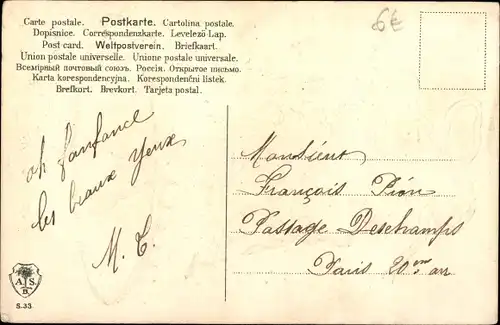 Carte postale. Postkarte. Cartolina postale.
Dopisnice. Correspondenzkarte. Levelező-Lap.
Post card. Weltpostverein. Briefkaart.
Union postale universelle. Unione postale universale.
Всемірный почтовый союзъ. Россія. Открытое письмо.
Karta korespondencyjna. Korespondenční listek.
Brefkort. Brevkort. Tarjeta postal.
6€
oh fanfance
les beaux yeux
M. T.
Monsieur
François Pion
Passage Deschamps
Paris 20
A S
B
S.33